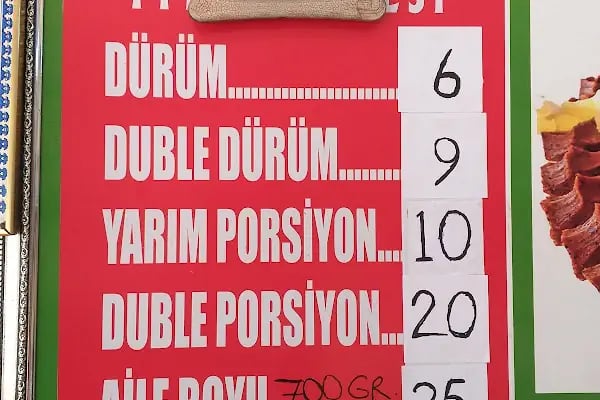 DÜRÜM.................... 6
DUBLE DÜRÜM......... 9
YARIM PORSİYON.... 10
DUBLE PORSİYON... 20
AİLE BOYU 700 GR. 25